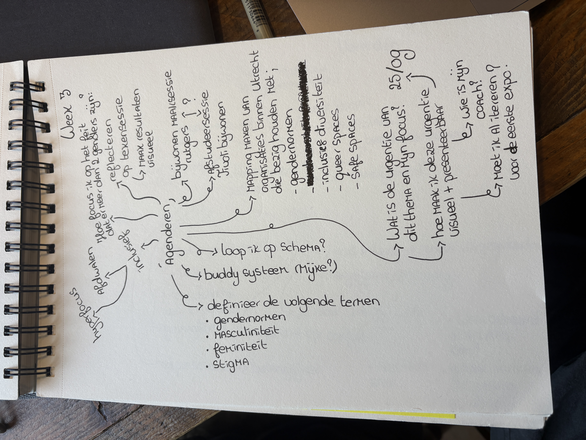 Week 3
hoe focus ik op het feit
dat er meer dan 2 genders zijn?
reflecteren
op tekensessie
→ maak resultaten
visueel
bijwonen maaksessie
rutgers ?
afstudeersessie
Truot bijwonen
mapping maken van
organisaties binnen utrecht
die bezig houden met;
- gendernormen
- inclusie & diversiteit
- queer spaces
- safe spaces
25/09
wat is de urgentie van
dit thema en mijn focus?
hoe maak ik deze urgentie
visueel + presenteerbaar
wie is mijn
coach?
moet ik al itereren?
voor de eerste expo?
hyperfocus
afduwen
inchecks
Agenderen,
loop ik op schema?
buddy systeem (Mijke?)
definieer de volgende termen
• gendernormen
• masculiniteit
• feminiteit
• stigma